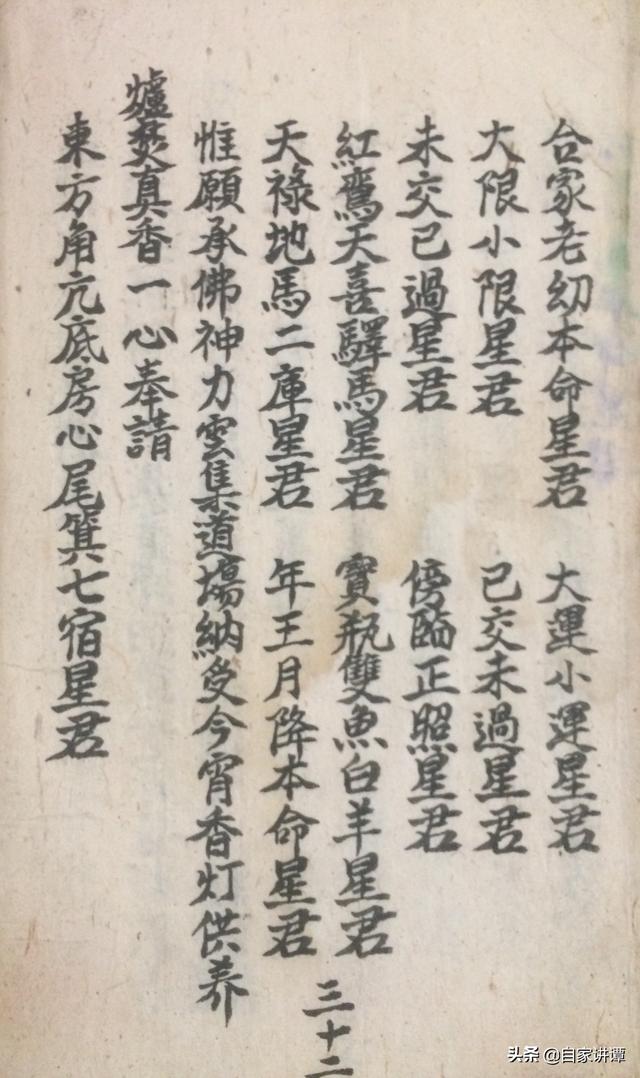 台家老幼本命星君 大運小運星君
大限小限星君 已交未過星君
未交已過星君 傍臨正照星君
紅鸞天喜驛馬星君 寶瓶雙魚白羊星君
天祿地馬二庫星君 年王月降本命星君
惟願承佛神力雲集道場納受今宵香灯供养
爐焚真香一心奉請
東方角亢底房心尾箕七宿星君
三十二
头条 @自家讲谭